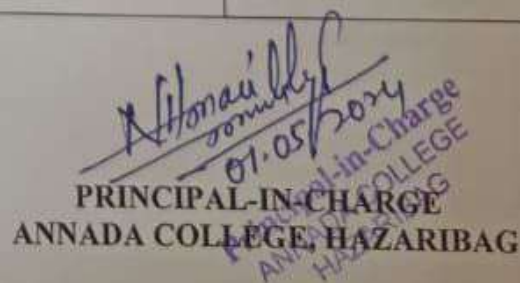 01.05/2024
PRINCIPAL-IN-CHARGE
ANNADA COLLEGE, HAZARIBAG
Principal-in-Charge
ANNADA COLLEGE
HAZARIBAG